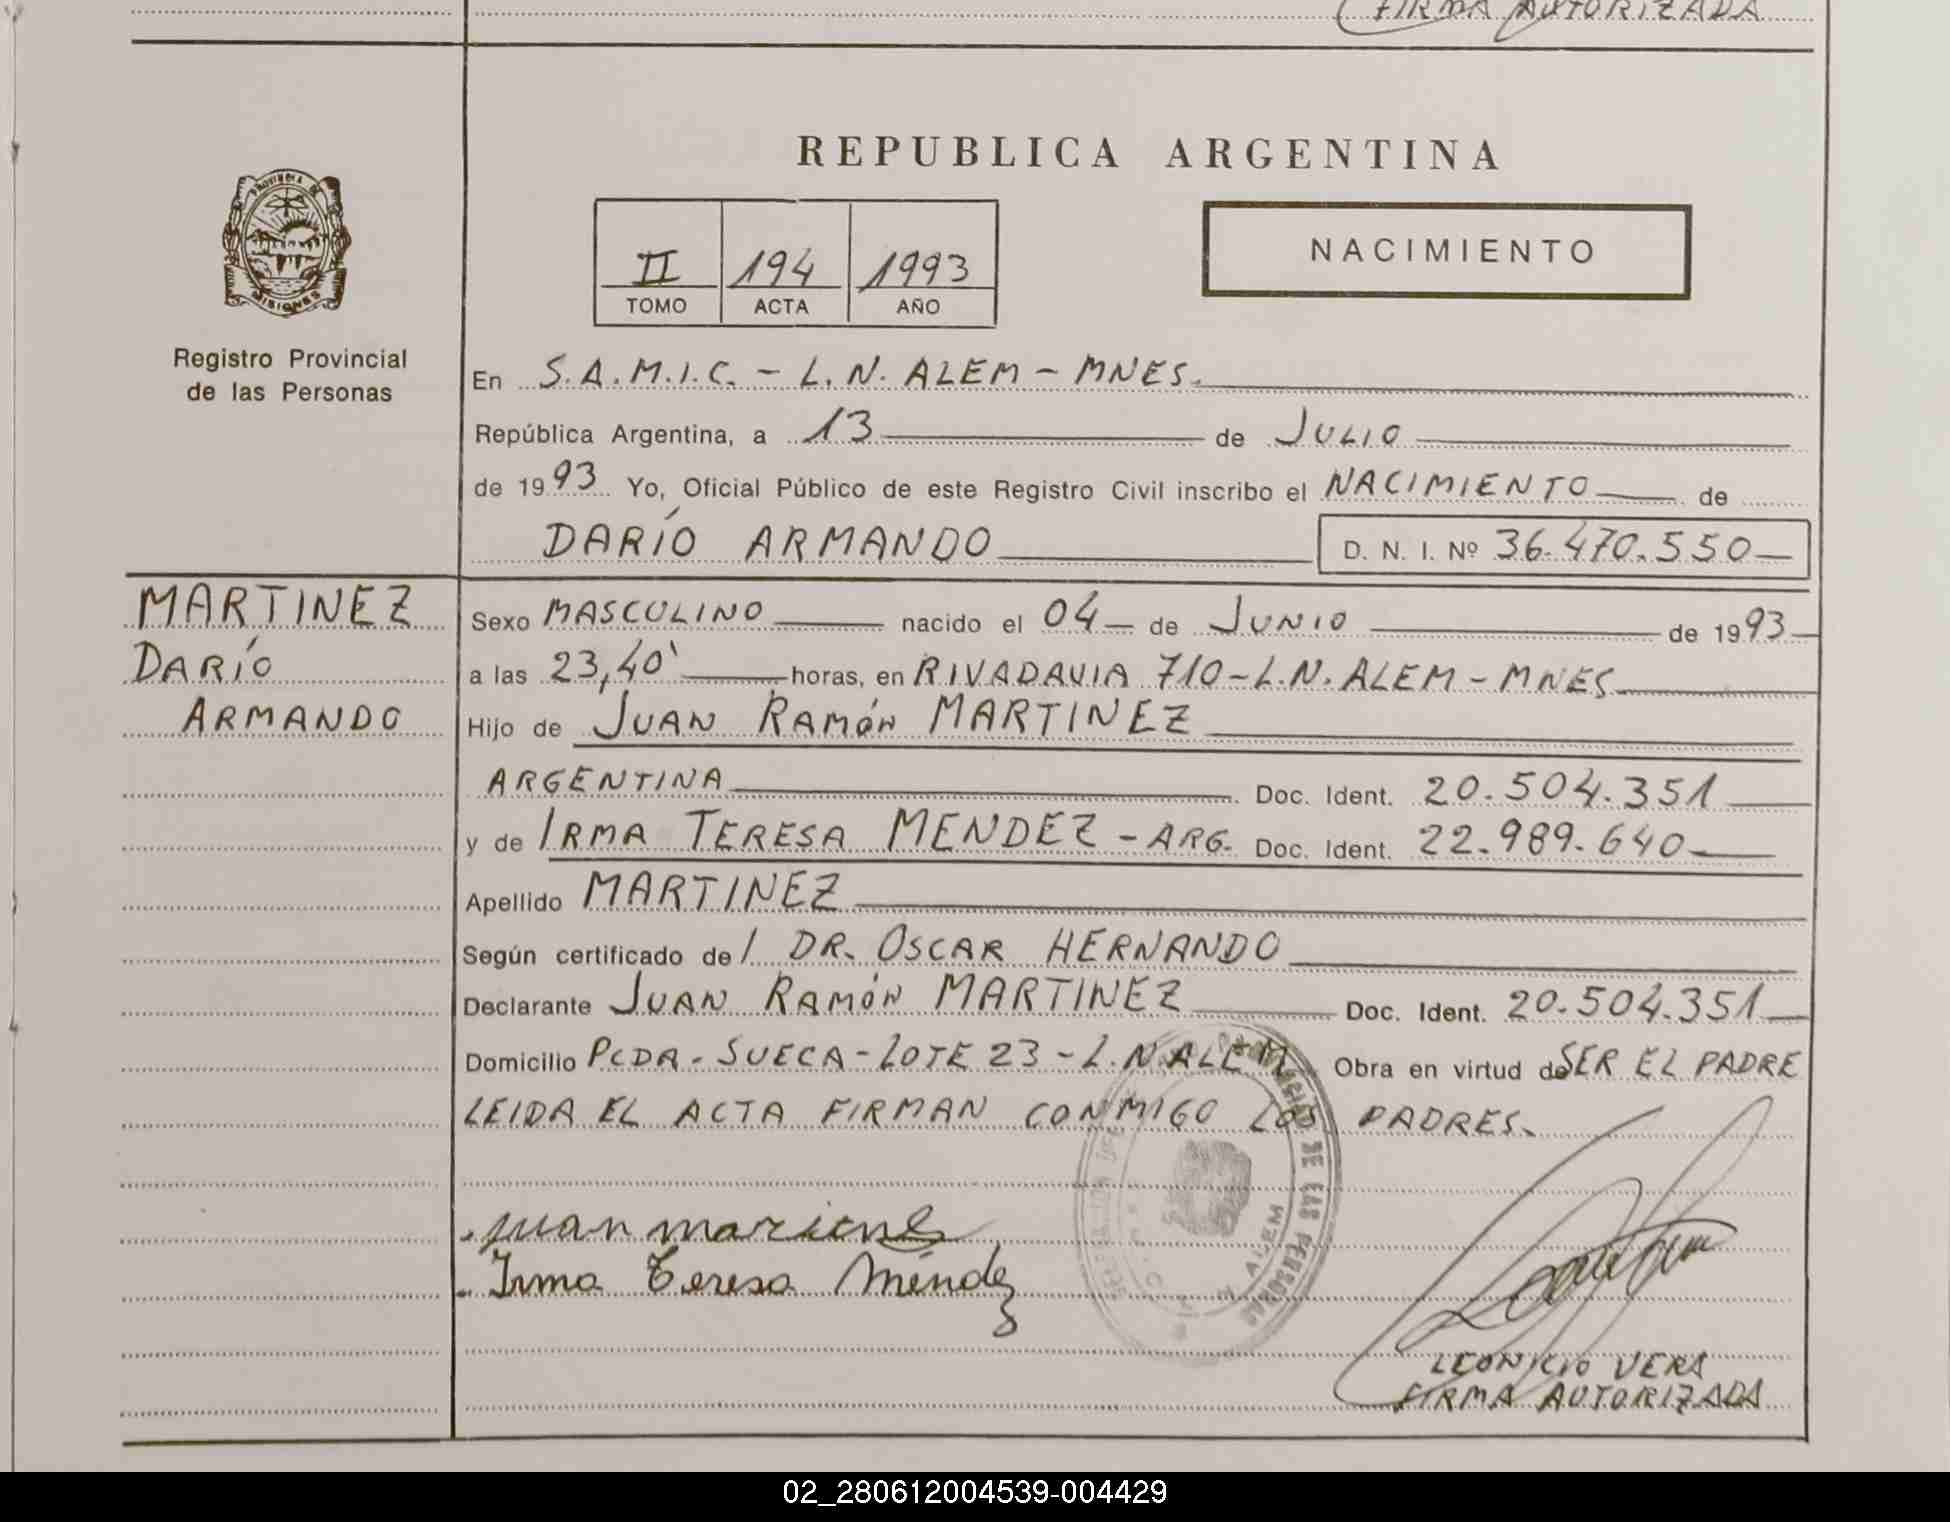 FIRMA AUTORIZADA
REPUBLICA ARGENTINA
PROVINCIA DE
MISIONES
Registro Provincial
de las Personas
II 194 1993
TOMO ACTA AÑO
NACIMIENTO
En S.A.M.I.C. - L.N. ALEM - MNES.
República Argentina, a 13 de JULIO
de 1993 Yo, Oficial Público de este Registro Civil inscribo el NACIMIENTO de
DARÍO ARMANDO D. N. I. Nº 36.470.550
MARTINEZ
DARÍO
ARMANDO
Sexo MASCULINO nacido el 04 de JUNIO de 1993
a las 23,40' horas, en RIVADAVIA 710 - L.N. ALEM - MNES
Hijo de JUAN RAMÓN MARTINEZ
ARGENTINA Doc. Ident. 20.504.351
y de IRMA TERESA MENDEZ - ARG. Doc. Ident. 22.989.640
Apellido MARTINEZ
Según certificado de l DR. OSCAR HERNANDO
Declarante JUAN RAMÓN MARTINEZ Doc. Ident. 20.504.351
Domicilio PCDA - SUECA - LOTE 23 - L.N. ALEM Obra en virtud de SER EL PADRE
LEIDA EL ACTA FIRMAN CONMIGO LOS PADRES.
DE LAS PERSONAS
ALEM
Juan
Irma Teresa Méndez
LEONICIO VERA
FIRMA AUTORIZADA
02_280612004539-004429